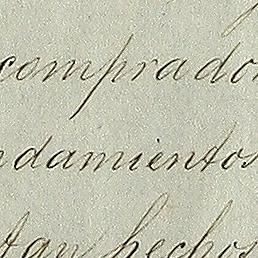 comprador
ndamientos
tan hechos